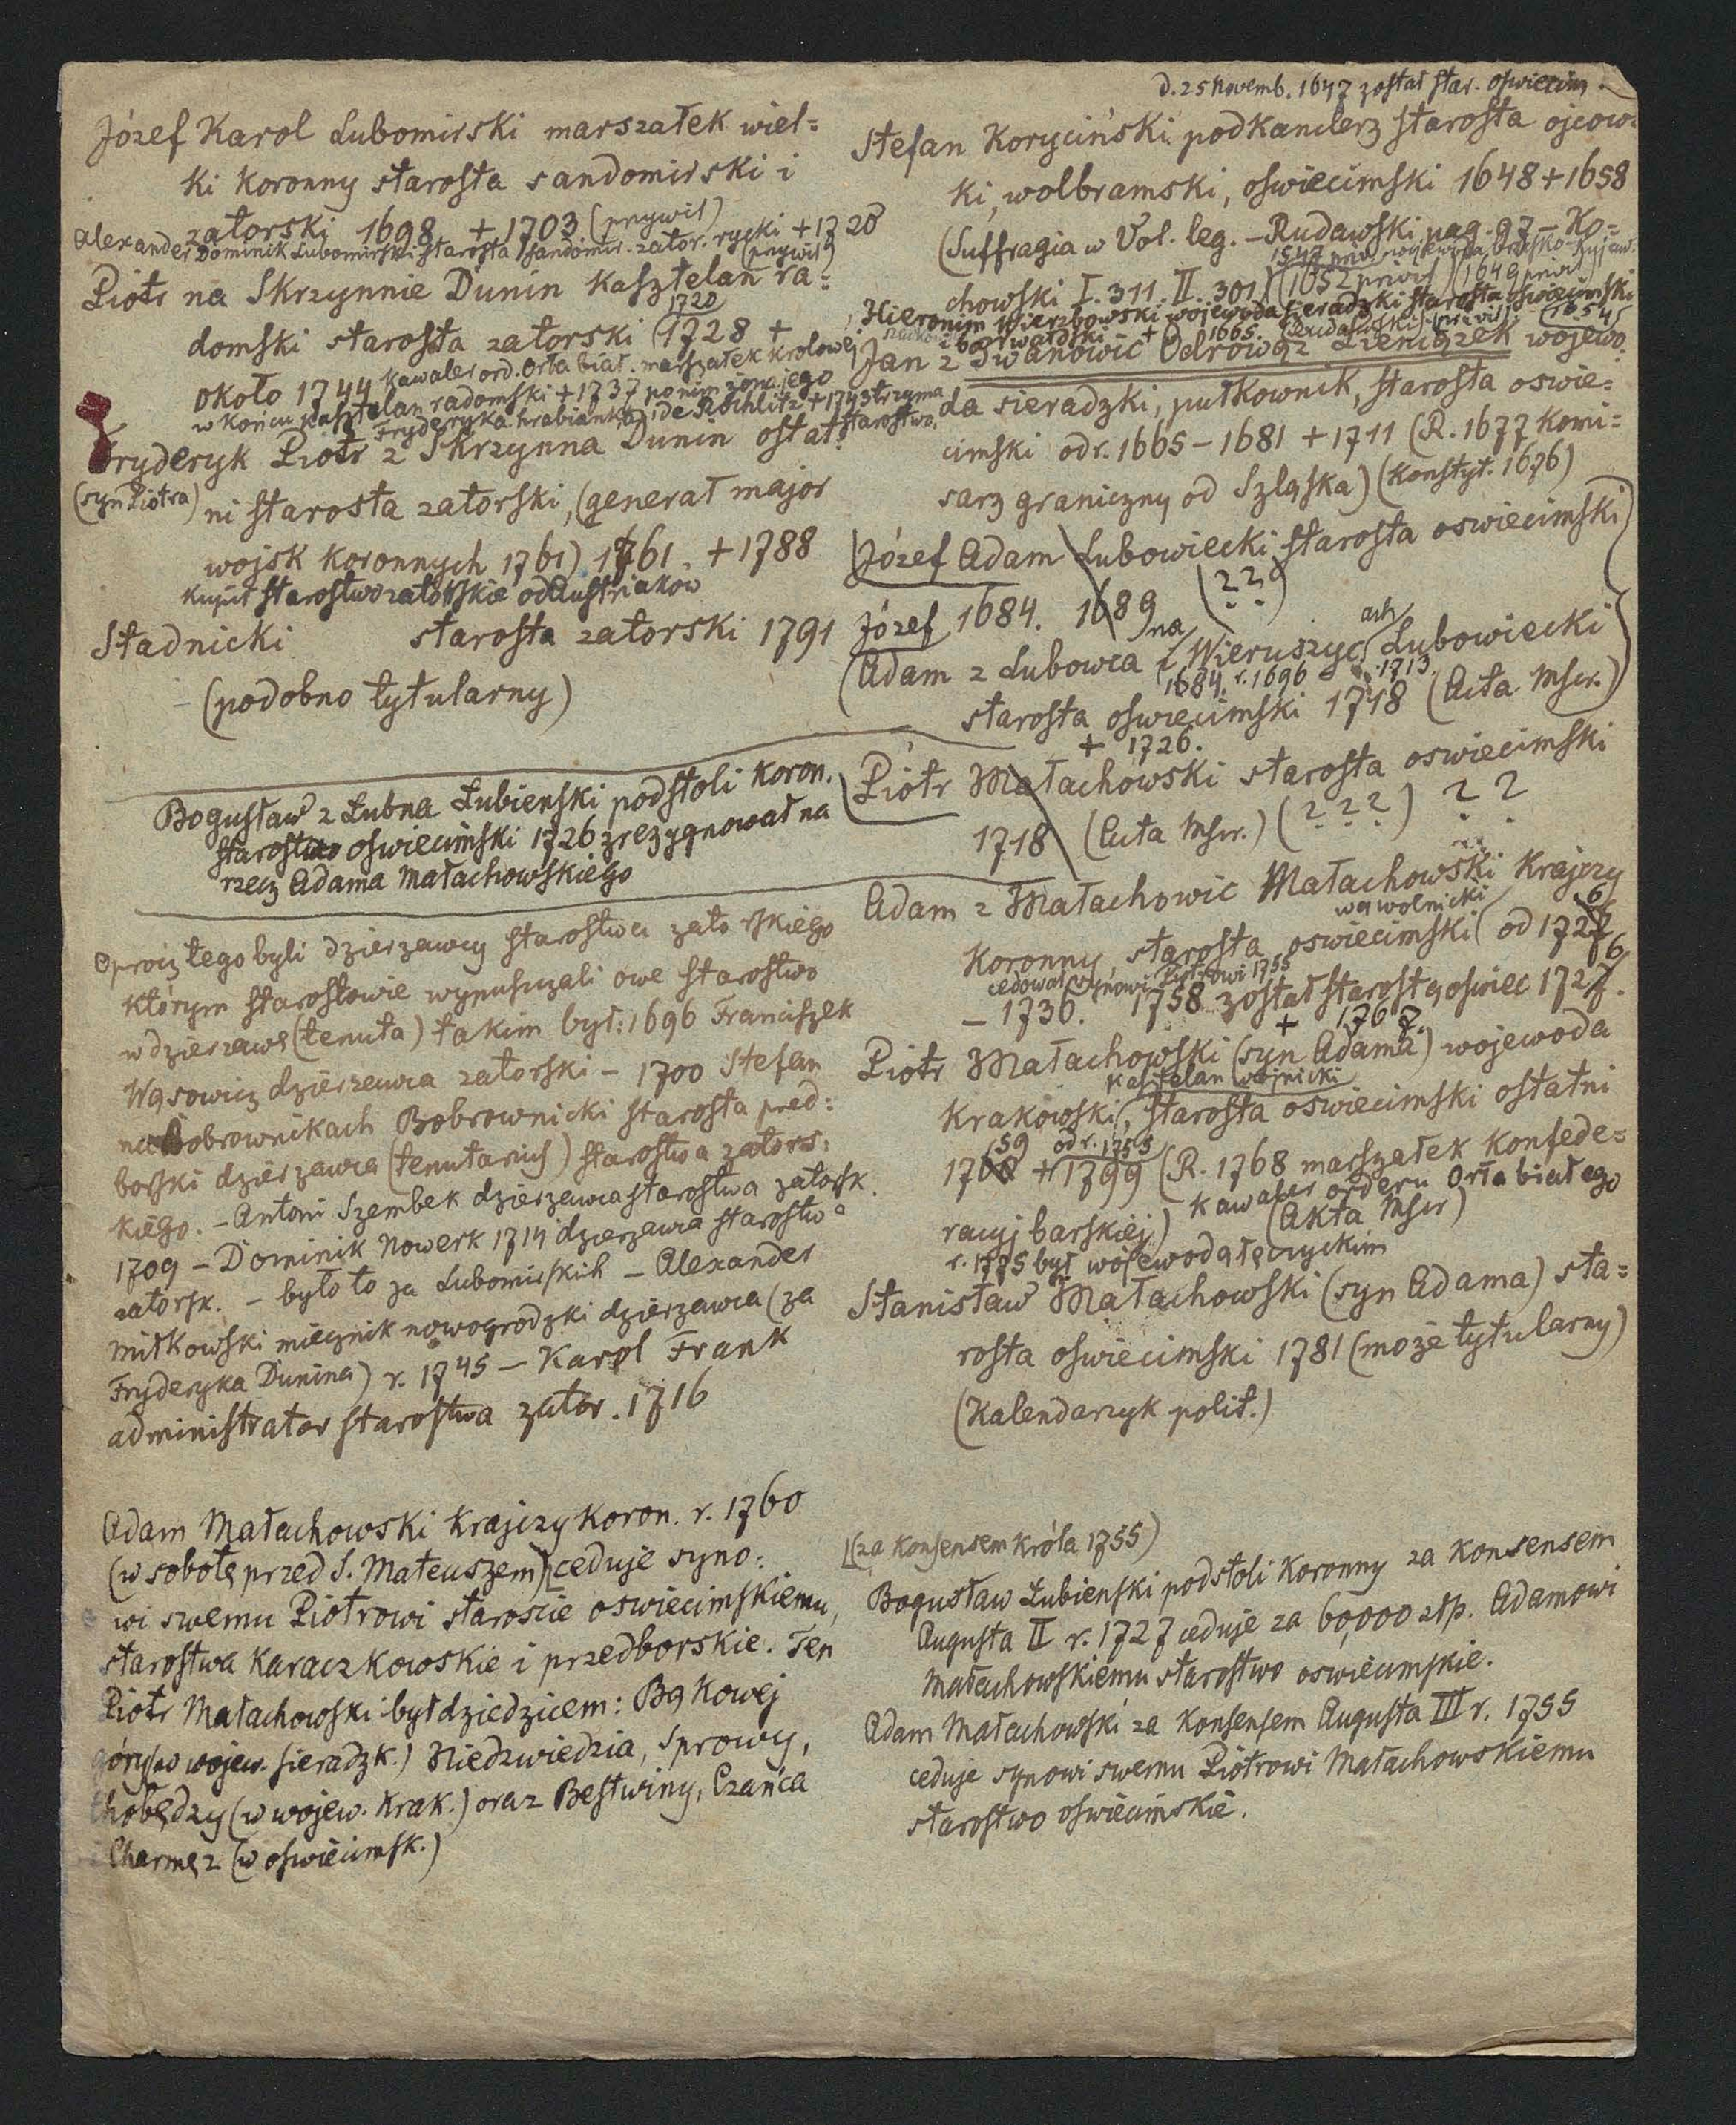 Józef Karol Lubomirski marszałek wiel=
ki koronny starosta sandomirski i
zatorski 1698 +1703 (przywil)
Alexander Dominik Lubomirski starosta sandomir. zator. rycki +1720
(przywil)
Piotr na Skrzynnie Dunin kasztelan ra=
1720
domski starosta zatorski (1728 +
około 1744 kawaler ord. Orła biał. marszałek krolowej
w końcu kasztelan radomski +1737 po nim żona jego
Fryderyka hrabianka de Rochlitz +1743 trzyma
starostwo.
Fryderyk Piotr z Skrzynna Dunin ostat=
(syn Piotra) ni starosta zatorski, (generał major
wojsk koronnych 1761) 1761. +1788
kupił starostwo zatorskie od Austriakow
Stadnicki starosta zatorski 1791
(podobno tytularny)
Bogusław z Łubna Łubienski podstoli koron.
starosta oswiecimski 1726 zrezygnował na
rzecz Adama Małachowskiego
Oprocz tego byli dzierzawcy starostwa zatorskiego
którym starostowie wypuszczali owe starostwo
w dzierzawę (tenuta) takim był: 1696 Franciszek
Wąsowicz dzierzawca zatorski – 1700 Stefan
na Bobrownikach Bobrownicki starosta pred=
borski dzierzawca (tenutarius) starostwa zators=
kiego. – Antoni Szembek dzierzawca starostwa zatorsk.
1709 – Dominik Nowerk 1714 dzierzawca starostwa
zatorsk. – było to za Lubomirskich – Alexander
Miłkowski miecznik nowogrodzki dzierzawca (za
Fryderyka Dunina) r. 1745 – Karol Frank
administrator starostwa zator. 1716
Adam Małachowski krajczy koron. r. 1760
(w sobotę przed S. Mateuszem) ceduje syno=
wi swemu Piotrowi staroscie oswiecimskiemu,
starostwa karaczkowskie i przedborskie. Ten
Piotr Małachowski był dziedzicem: Bąkowej
góry (w wojew. sieradzk.) Niedzwiedzia, Sprowy,
Chobędzy (w wojew. krak.) oraz Bestwiny, Czańca
i Charmęz (w oswiecimsk.)
d. 25 Novemb. 1647 został star. oswiecim.
Stefan Koryciński podkanclerz starosta ojcow=
ki, wolbramski, oswiecimski 1648 +1658
(Suffragia w Vol. leg. – Rudawski pag. 97 – Ko=
chowski I. 311. II. 301) (1652 przywil) (1649 przwil)
Hieronim Wierzbowski wojewoda sieradzki starosta oswiecimski
+ 1665.
Jan z Iwanowic Odrowąż Pieniążek wojewo=
da sieradzki, pułkownik, starosta oswie=
cimski od r. 1665 – 1681 +1711 (R. 1677 komi=
sarz graniczny od Szląska) (Konstyt. 1676)
Józef Adam Lubowiecki starosta oswiecimski
Józef 1684. 1689 (??)
(Adam z Lubowca i na Wieruszycach Lubowiecki
1684. r. 1696 1713
starosta oswiecimski 1718 (Acta Mscr.)
+ 1726.
Piotr Małachowski starosta oswiecimski
1718 (Acta Mscr.) (???) ??
Adam z Małachowic Małachowski krajczy
wąwolnicki
koronny, starosta oswiecimski (od 1726
cedował synowi Piotrowi 1755
– 1736. 1758 został starostą oswiec 1726.
+ 1767.
Piotr Małachowski (syn Adama) wojewoda
kasztelan wojnicki
krakowski, starosta oswiecimski ostatni
59 od r. 1755
1768 +1799 (R. 1768 marszałek konfede=
kawaler orderu Orła białego
racyj barskiéj) (Akta Mscr)
r. 1775 był wojewodą łęczyckim
Stanisław Małachowski (syn Adama) sta=
rosta oswiecimski 1781 (może tytularny)
(Kalendarzyk polit.)
(za konsensem króla 1755)
Bogusław Łubienski podstoli koronny za konsensem
Augusta II r. 1727 ceduje za 60,000 złp. Adamowi
Małachowskiemu starostwo oswiecimskie.
Adam Małachowski za konsensem Augusta III r. 1755
ceduje synowi swemu Piotrowi Małachowskiemu
starostwo oswiecimskie.